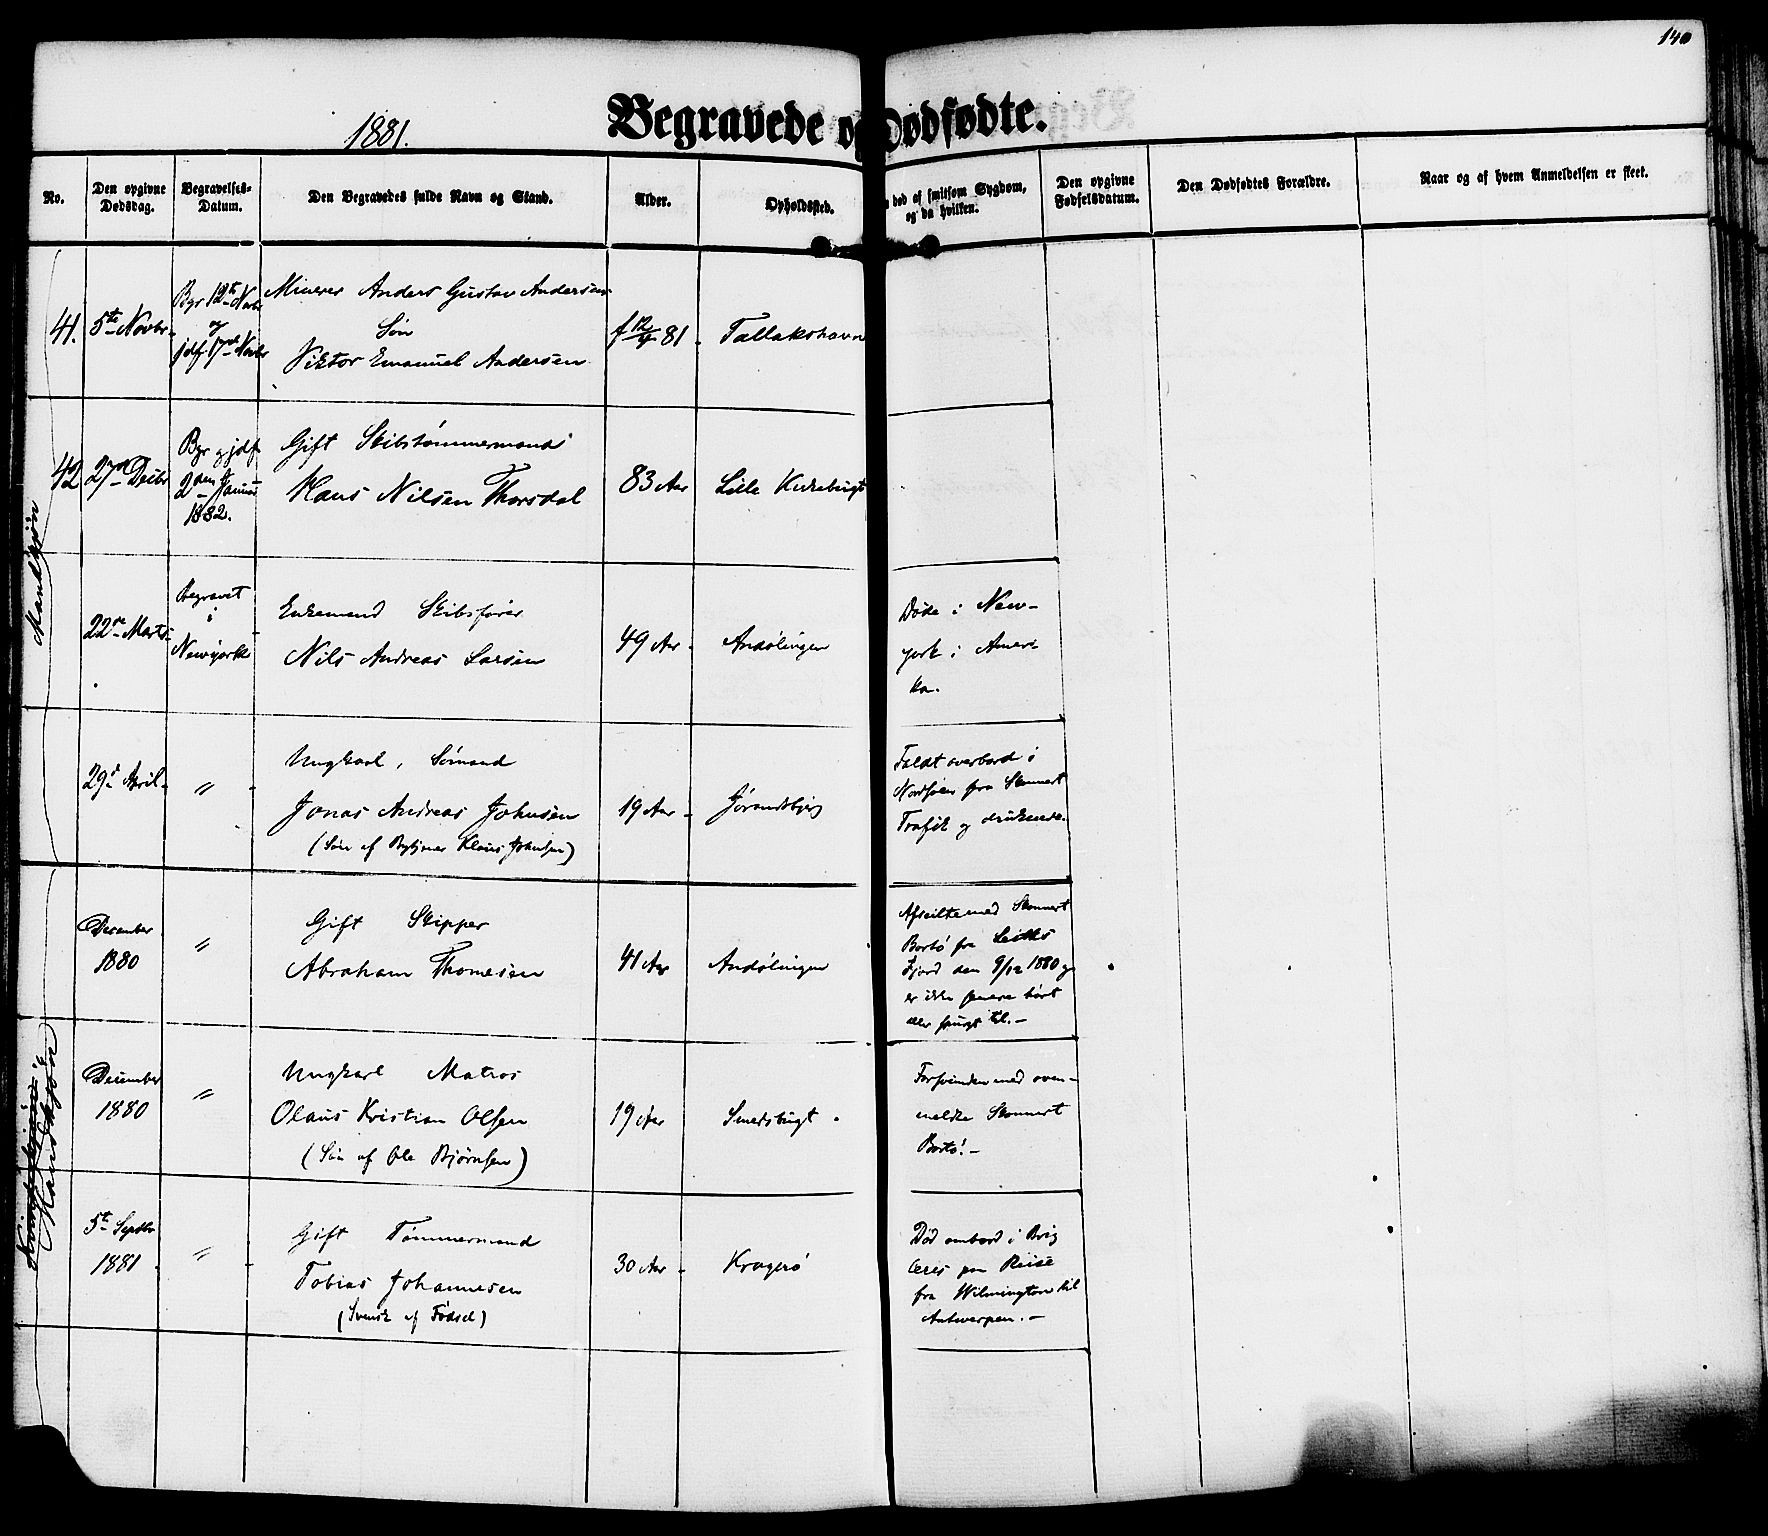 140
1881.
Begravede og Dødfødte.
No.
Den opgivne Dødsdag.
Begravelses-Datum.
Den Begravedes fulde Navn og Stand.
Alder.
Opholdssted.
død af smitsom Sygdom, og da hvilken.
Den opgivne Fødselsdatum.
Den Dødfødtes Forældre.
Naar og af hvem Anmeldelsen er skeet.
Mandkjøn
41.
5te Novbr
Bgr 12te Novbr
og
jdf 17de Novbr
Minerer Anders Gustav Andersens
Søn
Viktor Emanuel Andersen
81
Tallakshavn
42
27de Decbr
Bgr og jdf
2den Januar
1882.
Gift Skibstømmermand
Hans Nilsen Thorsdal
83 Aar
Lille Kirkebugt
22de Marts
Begravet
i
Newyork
Enkemand Skibsfører
Nils Andreas Larsen
49 Aar
Døde i New-
york i Ameri-
ka.
29de April
"
Ungkarl, Sømand
Jonas Andreas Johnsen
(Søn af Klaus Johnsen)
19 Aar
Faldt overbord i
Nordsøen fra Skonnert
Trafik og druknede.
Mandkjøn
December
1880
"
Gift Skipper
Abraham Thomesen
41 Aar
Afseilte med Skonnert
Bortø fra Leiths
Fjord den 9/12 1880 og
er ikke senere hørt
eller spurgt til.-
December
1880
"
Ungkarl Matros
Olaus Kristian Olsen
(Søn af Ole Bjørnsen)
19 Aar
Smedsbugt
Forsvunden med oven-
meldte Skonnert
Bortø!-
5te Septbr
1881
"
Gift Tømmermand
Tobias Johannesen
(Svensk af Fødsel)
30 Aar
Kragerø
Død ombord i Brig
Ceres paa Reise
fra Wilmington til
Antwerpen.-